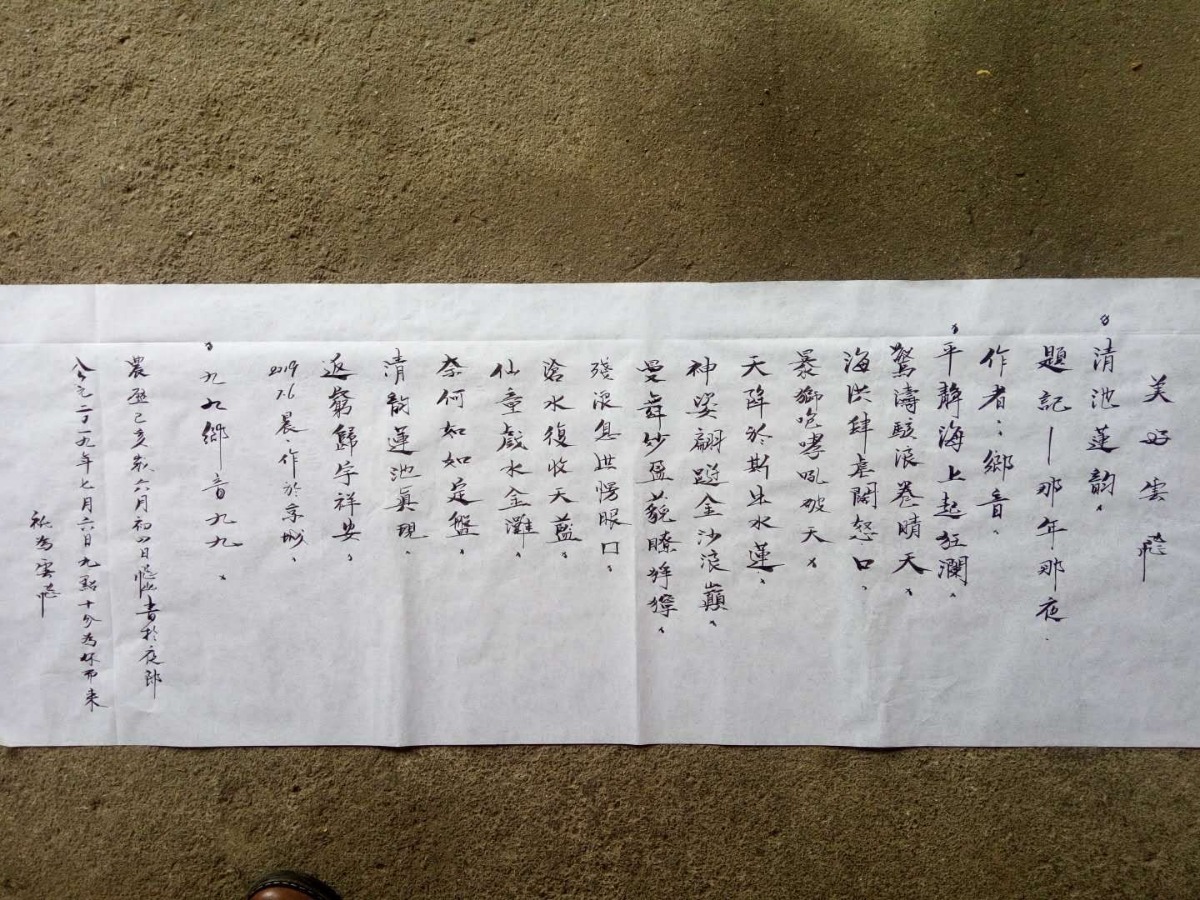 美好雲
清池蓮韵、
題記—那年那夜.
作者:鄉音。
平靜海上起狂瀾、
驚濤駭浪卷晴天、
海洪肆虐闊怒口、
暴獅咆哮吼破天、
天降於斯出水蓮、
神姿翩躚金沙浪巔、
曼舞妙盈藐瞭狰獰、
殘浪息迸愣眼口、
滄水復收天藍、
仙童戲水金灘、
奈何如如定盤、
清韵蓮池真現、
返窮歸宇祥安、
2019 7.6 晨、作於
九九鄉音九九、
農歷己亥歲六月初四日書於夜郎
公元二〇一九年七月六日九點十分為你而来
祝為雲